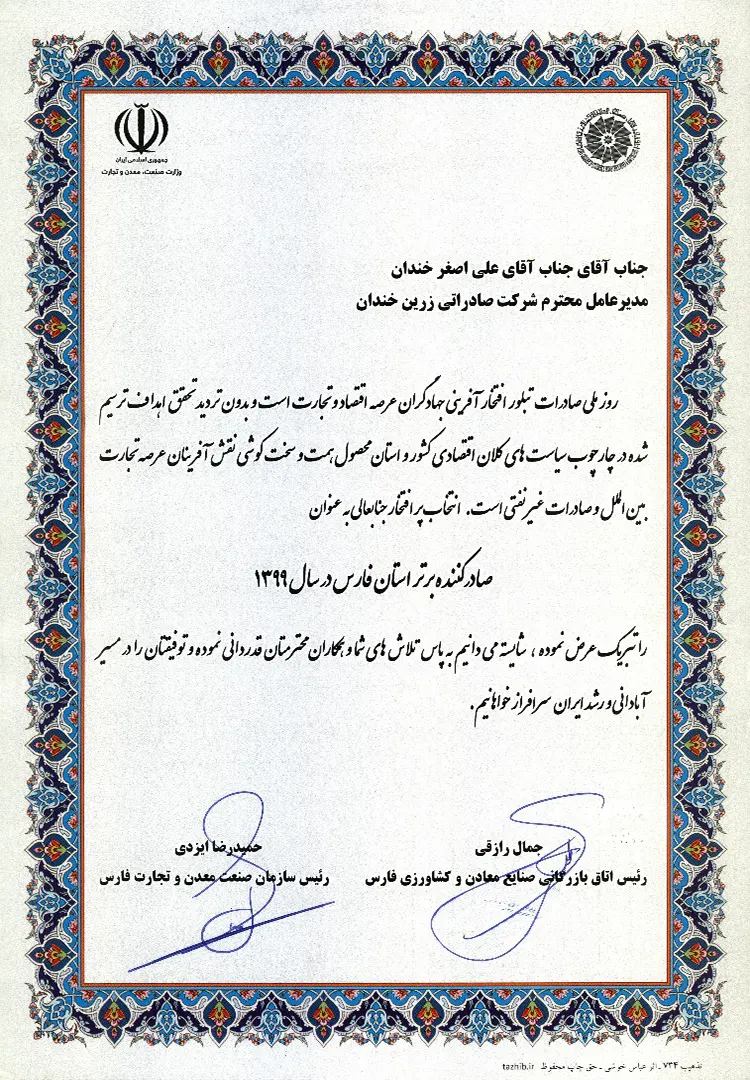 جمهوری اسلامی ایران
وزارت صنعت، معدن و تجارت
جناب آقای جناب آقای علی اصغر خندان
مدیرعامل محترم شرکت صادراتی زرین خندان
روز ملی صادرات تبلور افتخار آفرینی جهادگران عرصه اقتصاد و تجارت است و بدون تردید تحقق اهداف ترسیم
شده در چارچوب سیاست های کلان اقتصادی کشور و استان محصول همت و سخت کوشی نقش آفرینان عرصه تجارت
بین الملل و صادرات غیرنفتی است. انتخاب پر افتخار جنابعالی به عنوان
صادرکننده برتر استان فارس در سال ۱۳۹۹
را تبریک عرض نموده ، شایسته می دانیم به پاس تلاش های شما و همکاران محترمتان قدردانی نموده و توفیقتان را در مسیر
آبادانی و رشد ایران سرافراز خواهانیم.
جمال رازقی
رئیس اتاق بازرگانی صنایع معادن و کشاورزی فارس
حمیدرضا ایزدی
رئیس سازمان صنعت معدن و تجارت فارس
تذهیب ۷۳۴ ـ اثر عباس خوشی ـ حق چاپ محفوظ tazhib.ir